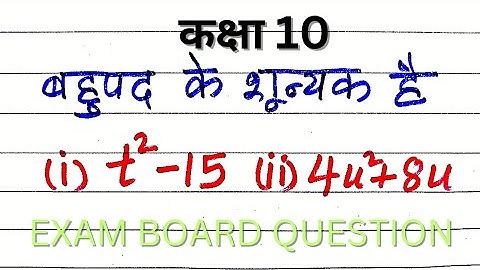 कक्षा 10
बहुपद के शून्यक है
(i) t²-15 (ii) 4u²+8u
EXAM BOARD QUESTION